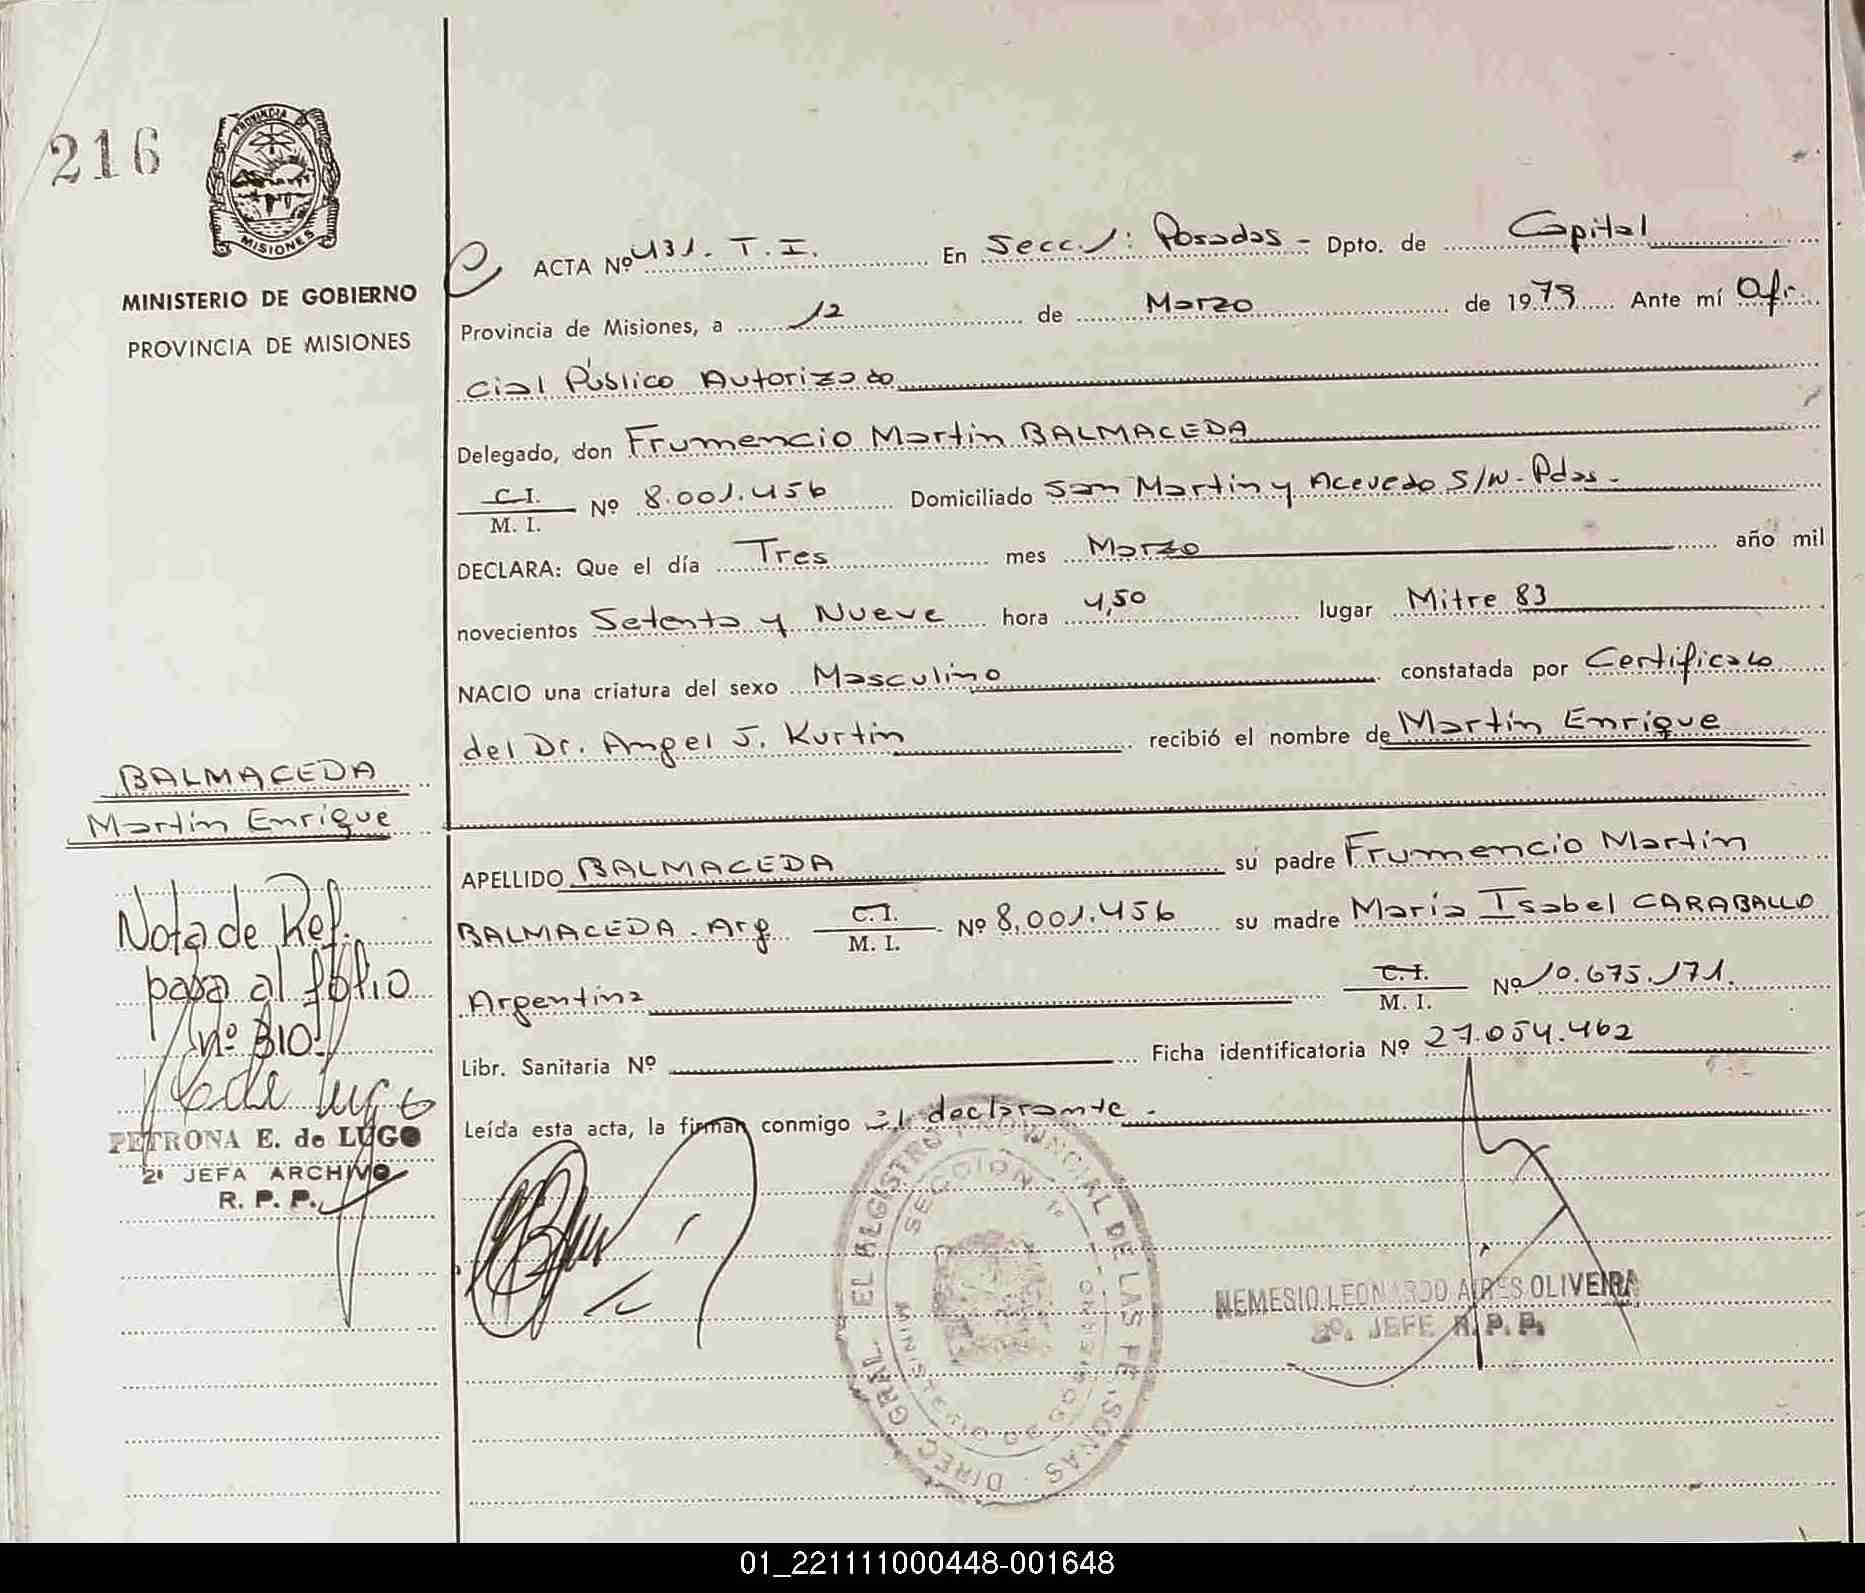 216
PROVINCIA DE
MISIONES
MINISTERIO DE GOBIERNO
PROVINCIA DE MISIONES
ACTA Nº 431. T. I. En Secc. 1: Posadas - Dpto. de Capital
Provincia de Misiones, a 12 de Marzo de 1979 Ante mí Ofi
cial Público Autorizado
Delegado, don Frumencio Martin BALMACEDA
C. I.
M. I. Nº 8.001.456 Domiciliado San Martin y Acevedo S/N - Pdas -
DECLARA: Que el día Tres mes Marzo año mil
novecientos Setenta y Nueve hora 4,50 lugar Mitre 83
NACIO una criatura del sexo Masculino constatada por Certificado
del Dr. Angel J. Kurtin recibió el nombre de Martin Enrique
BALMACEDA
Martin Enrique
APELLIDO BALMACEDA su padre Frumencio Martin
BALMACEDA - Arg C. I.
M. I. Nº 8.001.456 su madre María Isabel CARABALLO
Argentina C. I.
M. I. Nº 10.675.171.
Libr. Sanitaria Nº Ficha identificatoria Nº 27.054.462
Leída esta acta, la firman conmigo el declarante -
Nota de Ref.
pasa al folio
nº 310
PETRONA E. de LUGO
2ª JEFA ARCHIVO
R. P. P.
REGISTRO PROVINCIAL DE LAS PERSONAS
DIREC. GRAL.
SECCION 1a
MINISTERIO DE GOBIERNO
NEMESIO LEONARDO AIRES OLIVEIRA
2º. JEFE R. P. P.
01_221111000448-001648